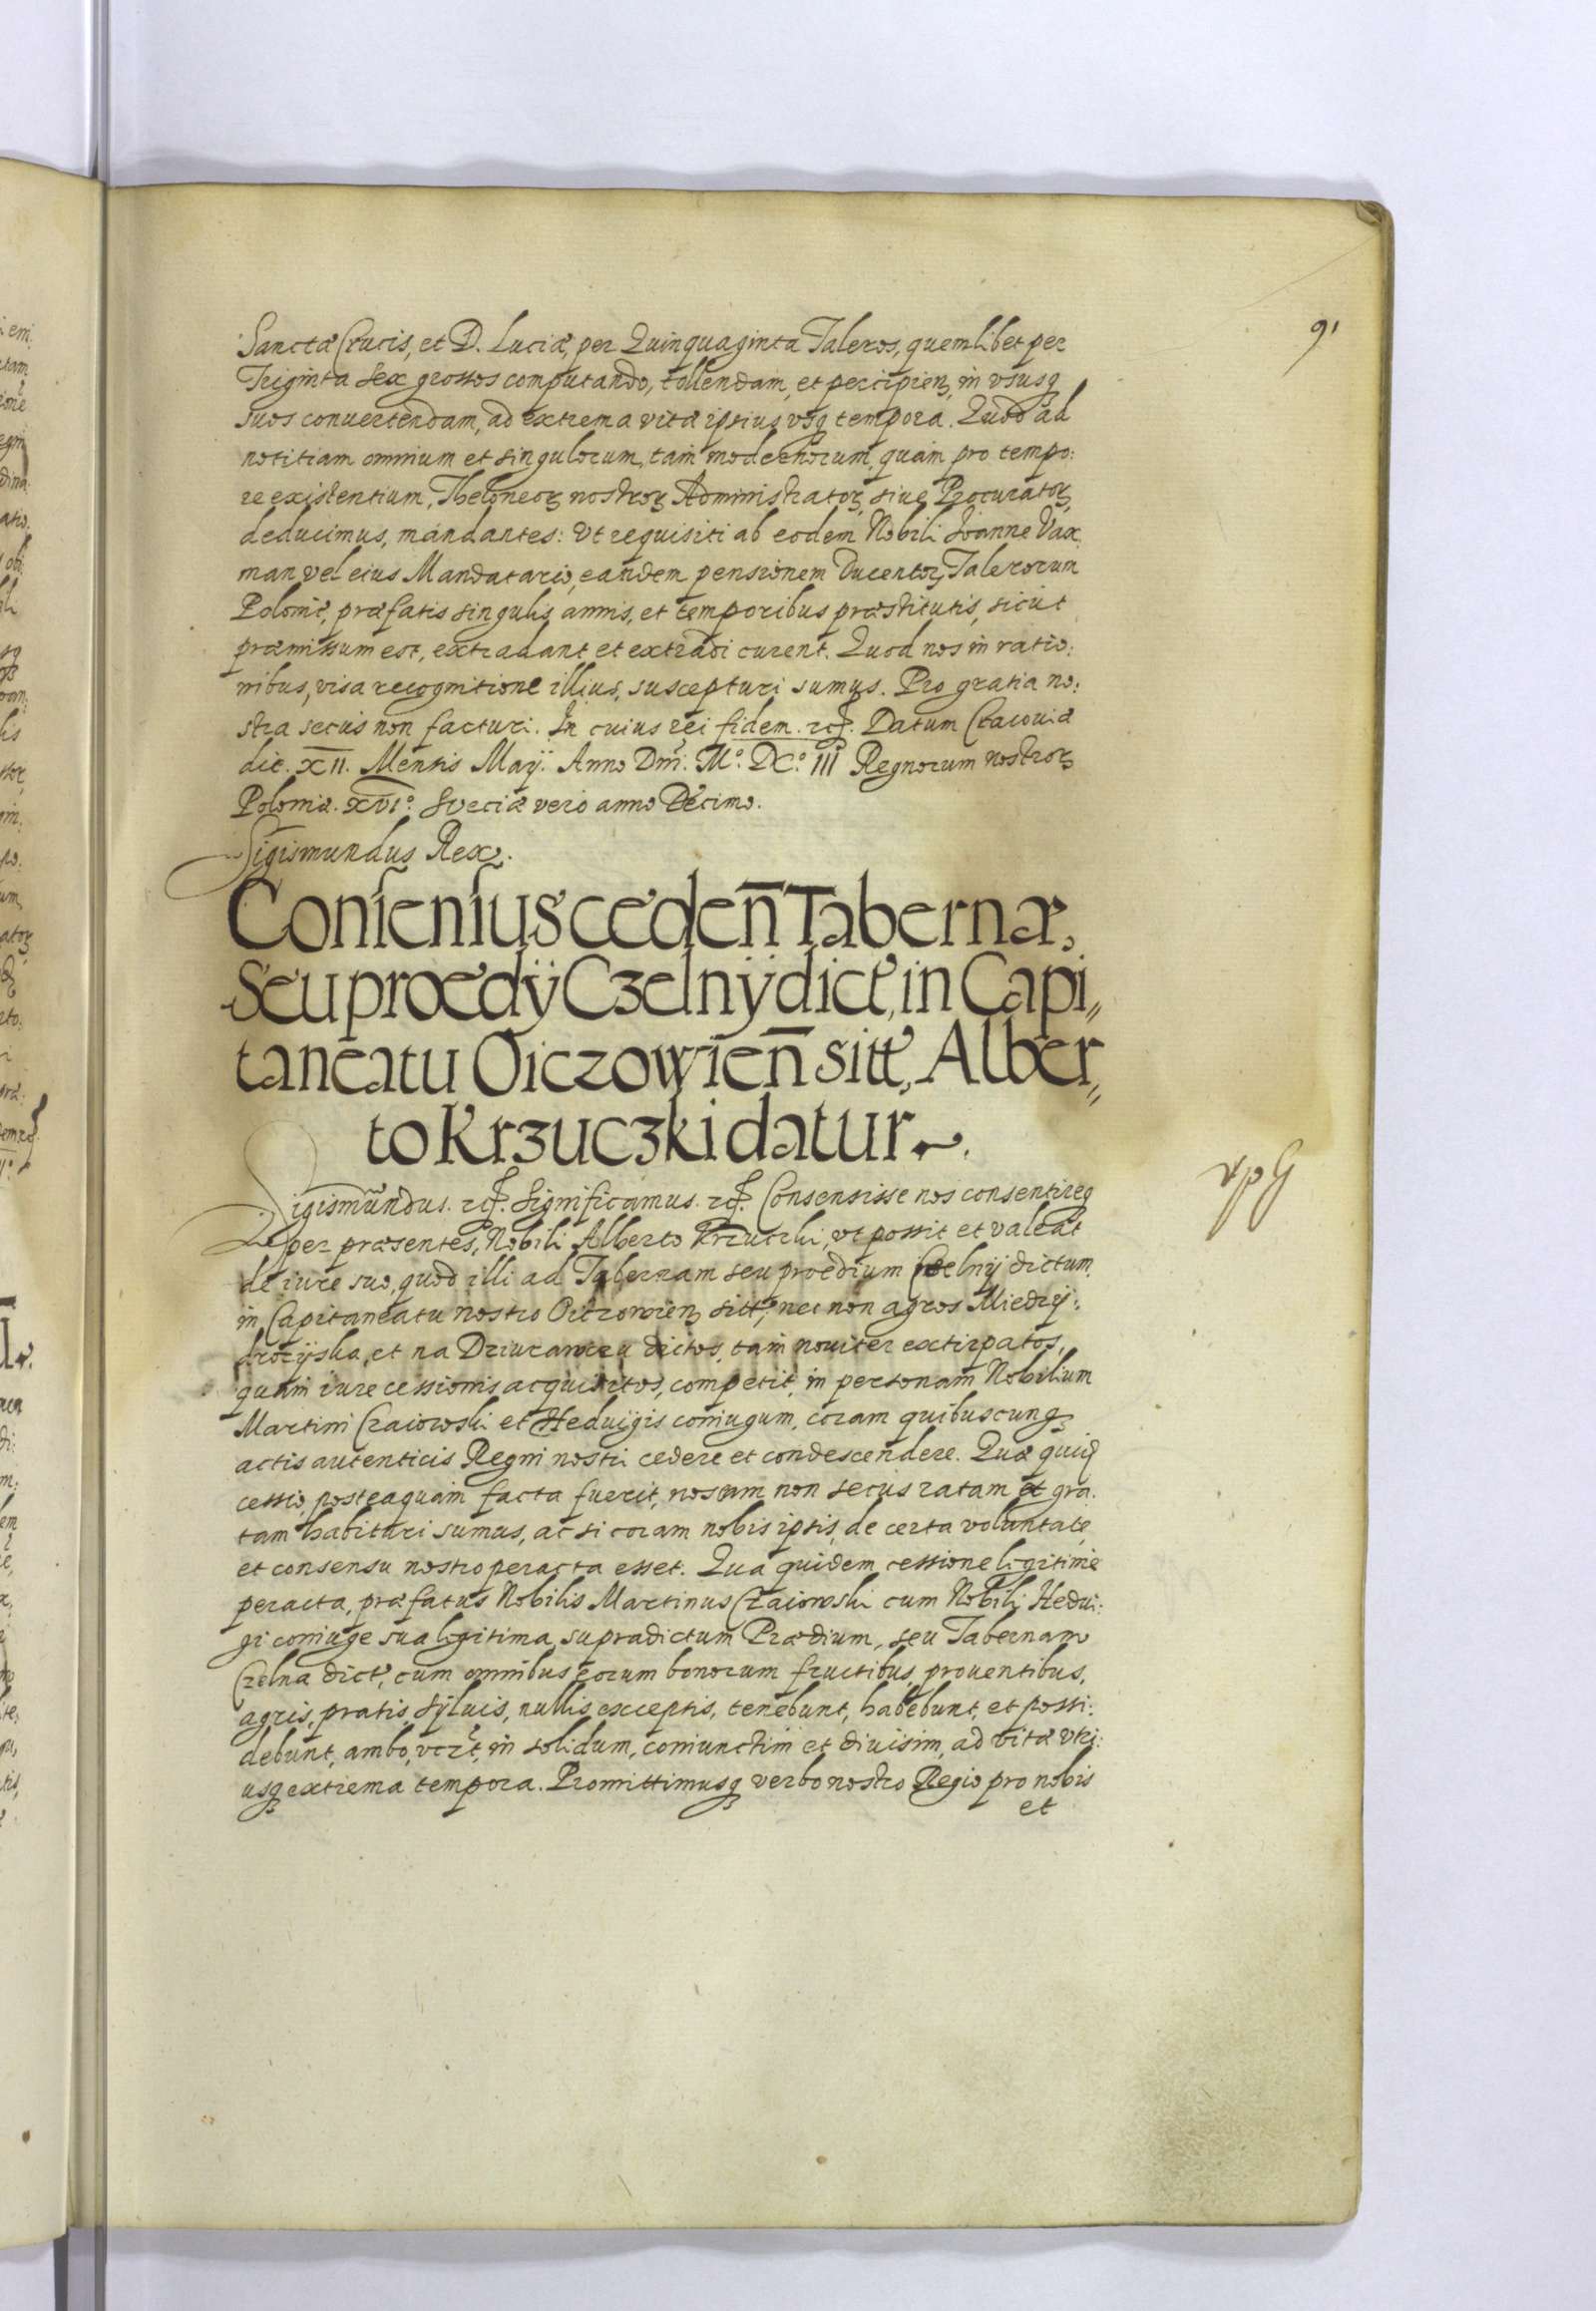 91
Sanctæ Crucis, et D. Luciæ, per Quinquaginta Taleros, quemlibet per
Triginta sex grossos computando, tollendam, et percipien, in vsusq
suos conuertendam, ad extrema vitæ ipsius vsq tempora. Quod ad
notitiam omnium et singulorum, tam modernorum, quam pro tempo:
re existentium, Theloneor nostror Administrator, siue Procurator,
deducimus, mandantes: Vt requisiti ab eodem Nobili Ioanne Vax
man vel eius Mandatario, eandem pensionem Ducentor Talerorum
Poloniæ, præfatis singulis annis, et temporibus præstitutis, sicut
præmissum est, extradant et extradi curent. Quod nos in ratio:
nibus, visa recognitione illius, suscepturi sumus. Pro gratia no:
stra secus non facturi. In cuius rei fidem. etc. Datum Cracouiæ
die. XII. Mensis Maij. Anno Dni. Mº. DCº. III Regnorum nostror
Poloniæ. XVIº. Sveciæ vero anno Decimo.
Sigismundus Rex.
Consensus cedeñ Tabernæ,
Seu proedÿ Czelnÿ dict, in Capi„
taneatu Oiczowień sitt, Alber„
to Krzuczki datur.
Sigismundus. etc. Significamus. etc. Consensisse nos consentireq
per præsentes, Nobili Alberto Krzuczki, vt possit et valeat
de iure suo, quod illi ad Tabernam seu proedium Czelnij dictum
in Capitaneatu nostro Oiczowien sitt, nec non agros Miedzij:
droczijska, et na Dziurawczu dictos, tam nouiter extirpatos,
quam iure cessionis acquisitos, competit, in personam Nobilium
Martini Czaiowski et Heduijgis coniugum, coram quibuscunq
actis autenticis Regni nostri cedere et condescendere. Quæ quid
cessio, posteaquam facta fuerit, nos eam non secus ratam et gra.
tam habituri sumus, ac si coram nobis ipsis, de certa voluntate
et consensu nostro peracta esset. Qua quidem cessione legitime
peracta, præfatus Nobilis Martinus Czaiowski cum Nobili Hedui:
gi coniuge sua legitima, supradictum Prædium, seu Tabernam
Czelna dict, cum omnibus eorum bonorum fructibus, prouentibus,
agris, pratis, sÿluis, nullis exceptis, tenebunt, habebunt, et possi:
debunt, ambo, vert, in solidum, coniunctim et diuisim, ad vitæ vtri:
usq extrema tempora. Promittimusq verbo nostro Regio pro nobis
et